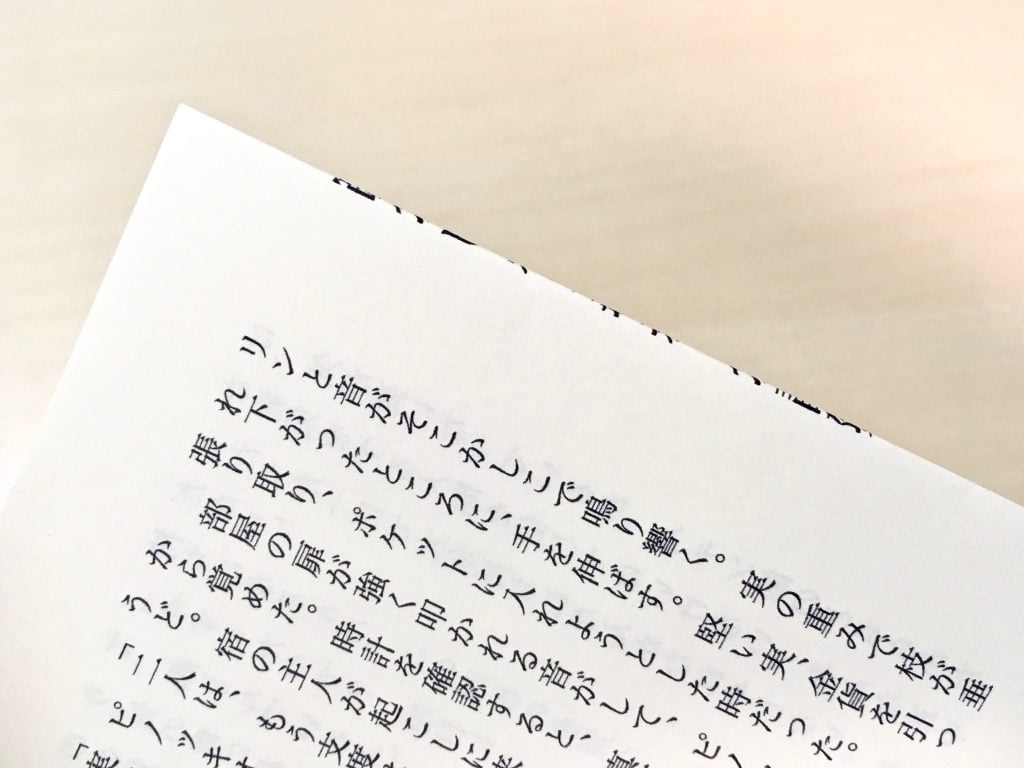 リンと音がそこかしこで鳴り響く。実の重みで枝が垂
れ下がったところに、手を伸ばす。堅い実、金貨を引っ
張り取り、ポケットに入れようとした時だった。
部屋の扉が強く叩かれる音がして、ピノ
から覚めた。時計を確認すると、真
うど。宿の主人が起こしに来
「二人は、もう支度
ピノッキオ